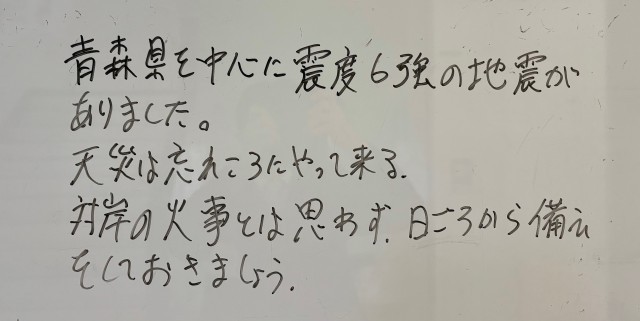 青森県を中心に震度6強の地震が
ありました。
天災は忘れころにやって来る.
対岸の火事とは思わず.日ごろから備え
をしておきましょう.